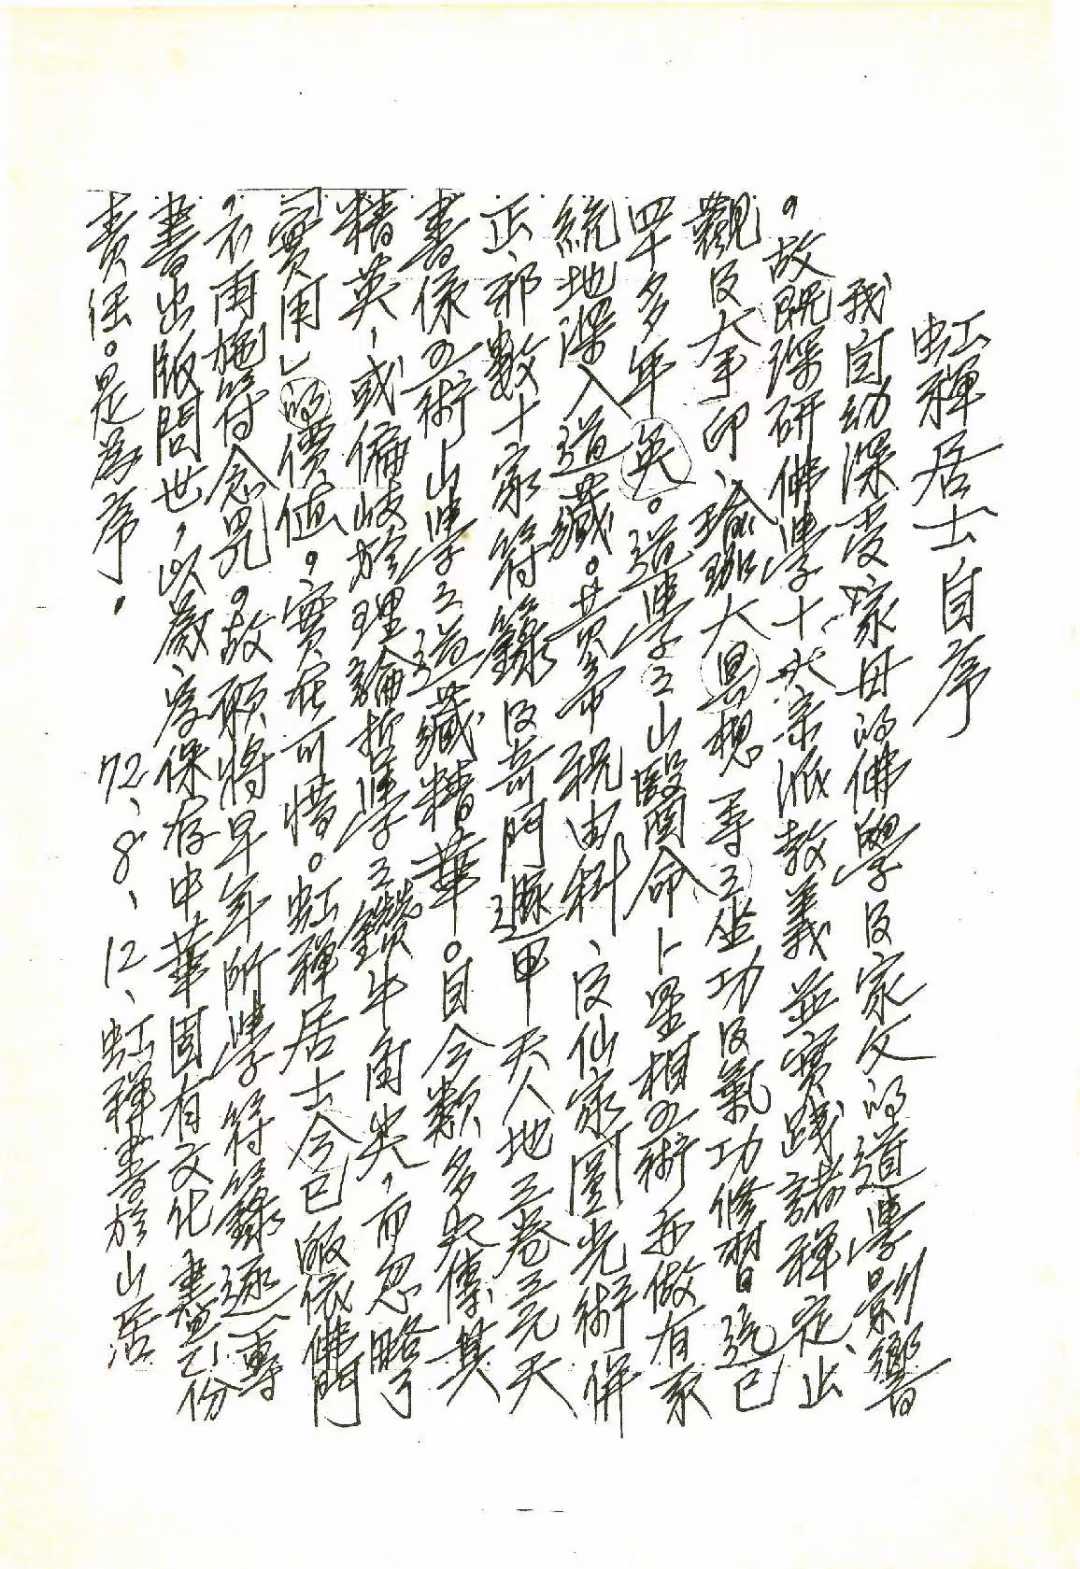 虹禪居士自序
我自幼深受家母的佛學及家父的道學影響
，故既深研佛學十大宗派教義並實踐諸禪定、止
觀及大手印、瑜珈大冥想等之坐功及氣功修習迄已
四十多年矣。道學之山醫命卜星相五術亦做有系
統地深入道藏。黃帝祝由科、及仙家圓光術併
正、邪數十家符籙及奇門遁甲天人地三卷三元天
書係五術山學之道藏精華。自今類多失傳其
精英，或偏岐於理論哲學之鑽牛角尖，而忽略了
「實用」的價值。實在可惜。虹禪居士今已皈依佛門
，不再施符念咒。故願將早年所學符籙逐一專
書出版問世，以嚴守保存中華固有文化盡己份
責任。是為序。
72、8、12、虹禪書於山居